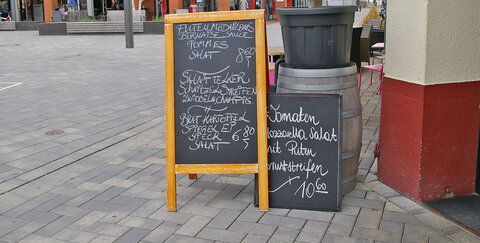 PUTEN MEDAILLONS
BERNAISE SAUCE
POMMES 8 60
SALAT
SALATTELLER
SCHNITZEL STREIFEN
ZWIEBELCHAMPIGN.
BRAT KARTOFFEL
SPIEGEL EI 6 80
SPECK
SALAT
Tomaten
Mozzarella Salat
mit Puten
bruststreifen
10 60